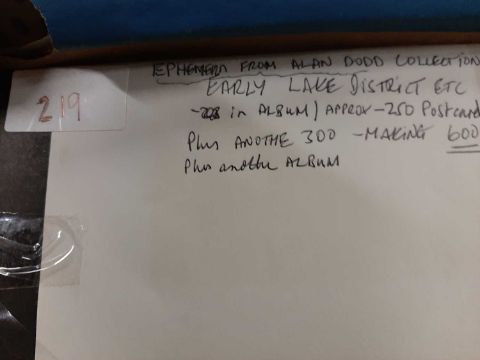 EPHEMERA FROM ALAN DODD COLLECTION
EARLY LAKE DISTRICT ETC
219
- in ALBUM) APPROX-250 Postcard
Plus ANOTHE 300 -MAKING 600
Plus another ALBUM